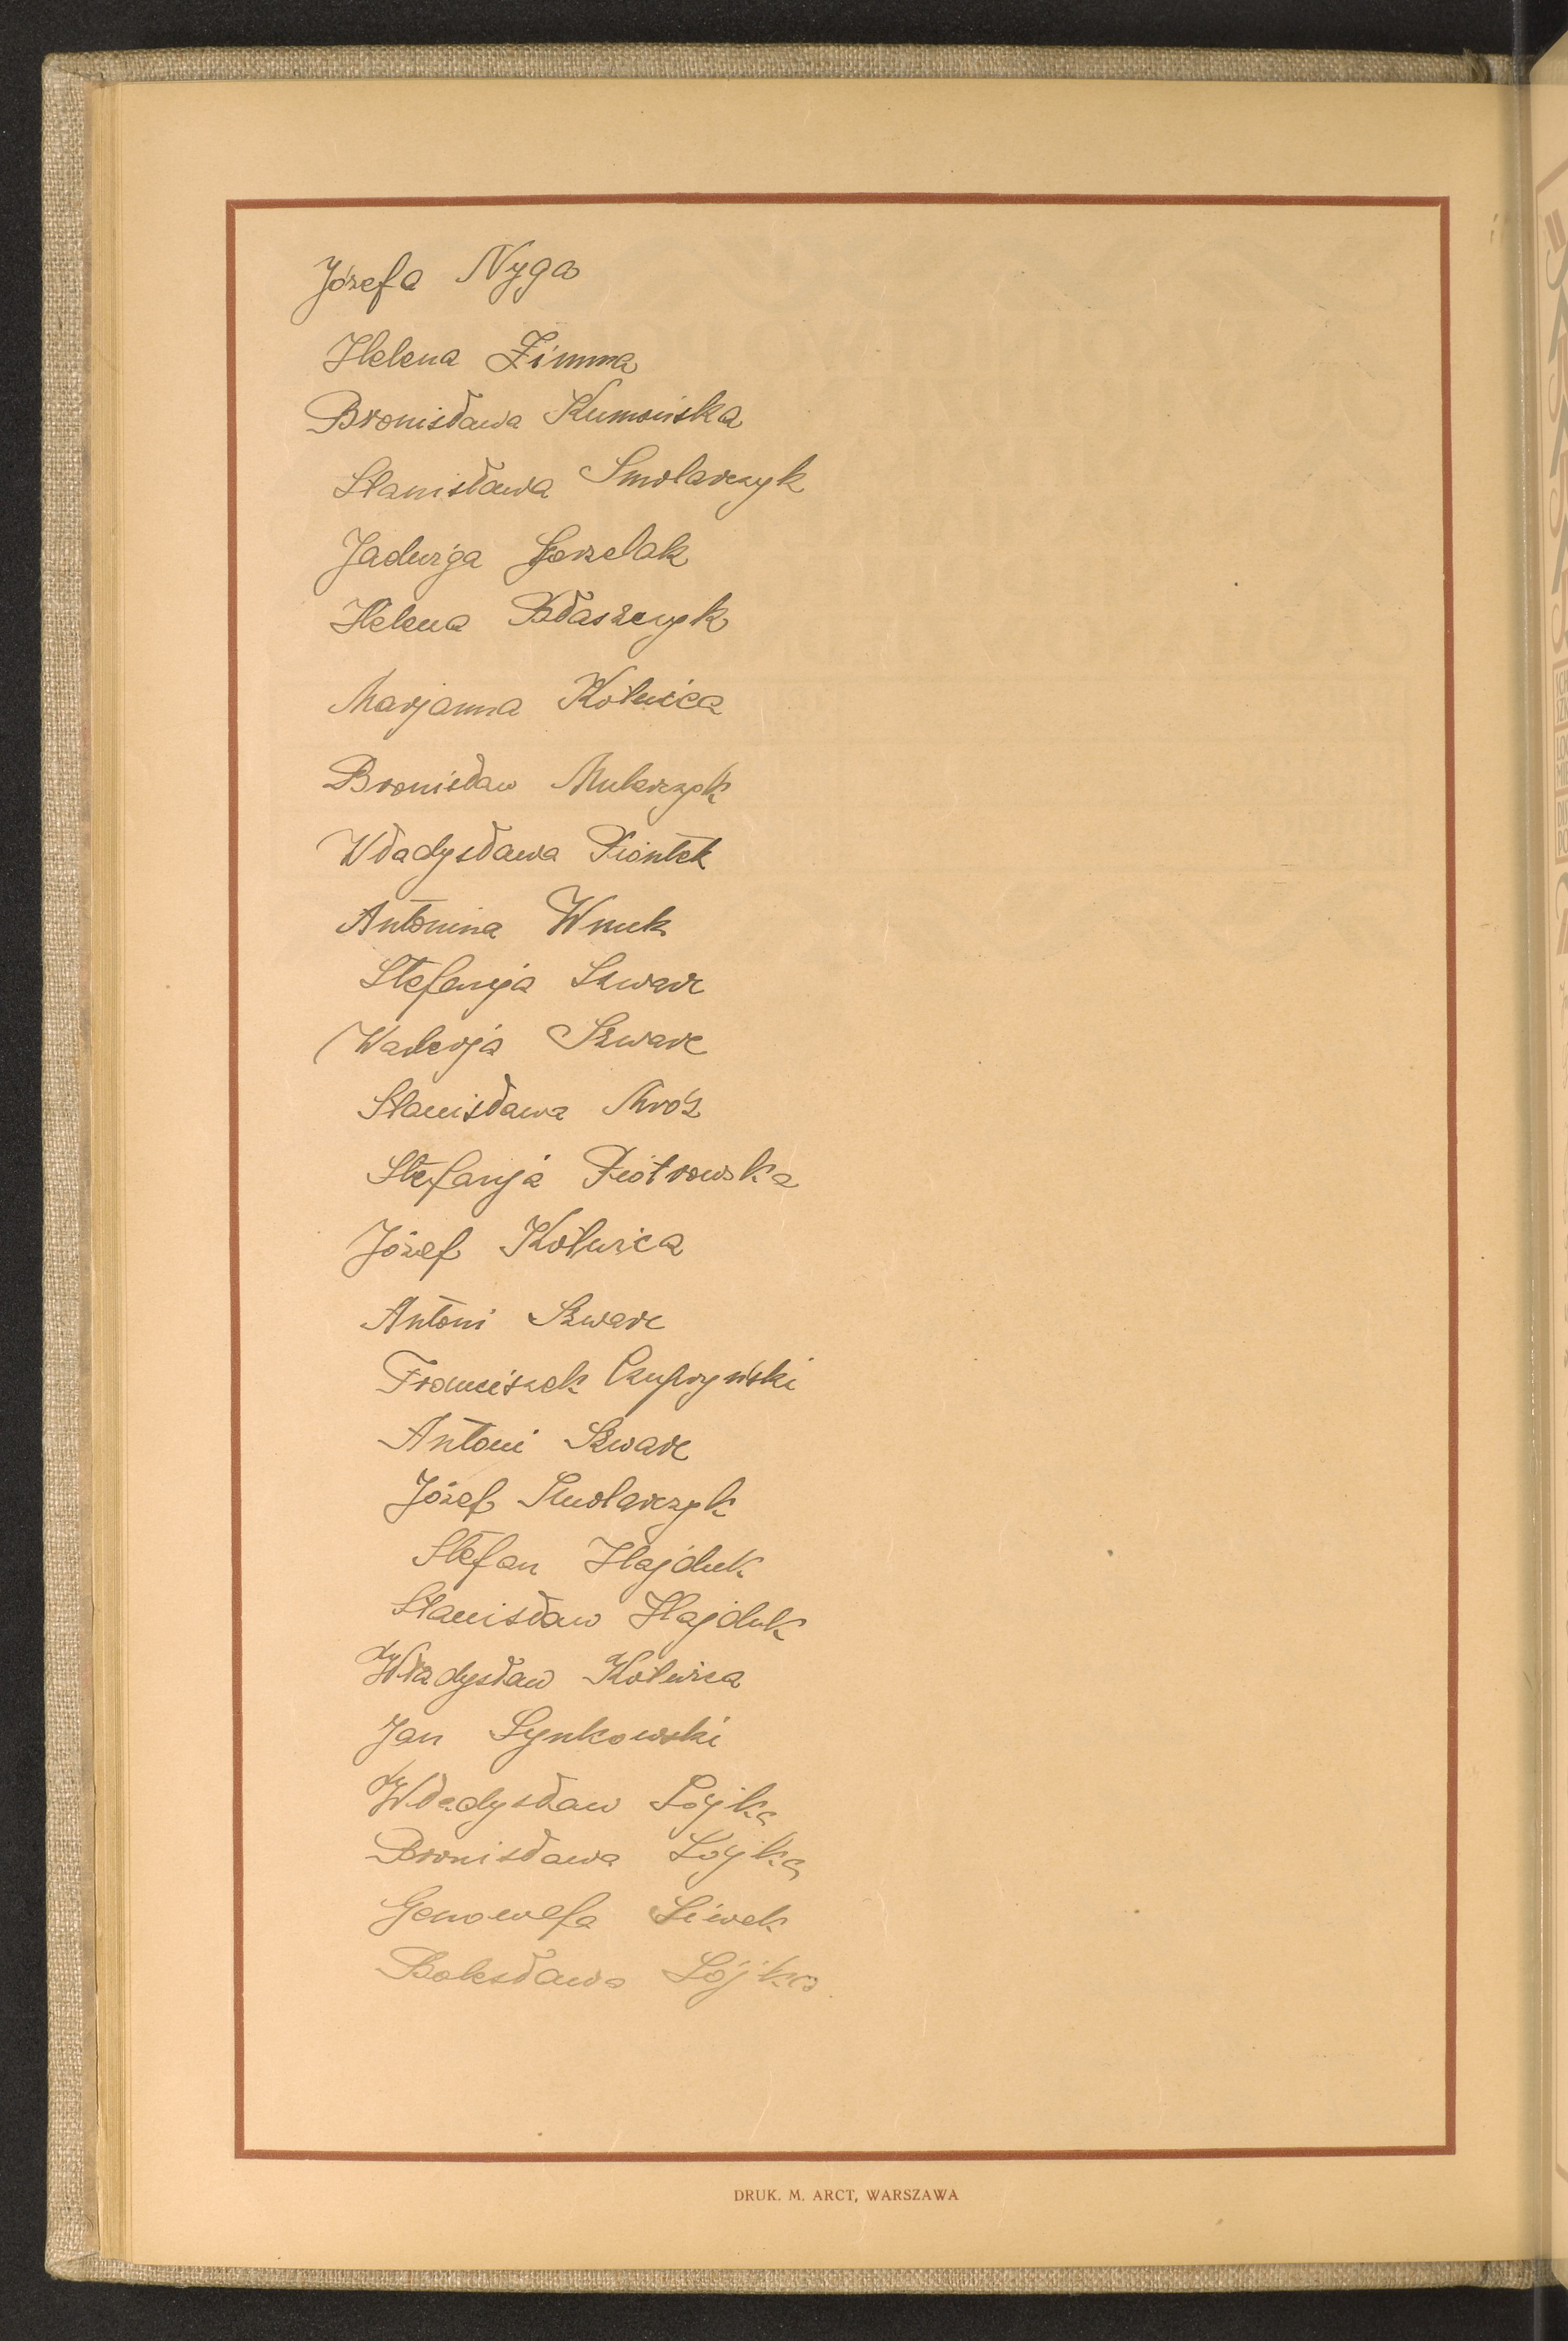 Józefa Nyga
Helena Zimna
Bronisława Kumońska
Stanisława Smolarczyk
Jadwiga Gorzelak
Helena Błaszczyk
Marjanna Kotwica
Bronisław Mularczyk
Władysława Piontek
Antonina Wnuk
Stefanja Szwarc
Walerja Szwarc
Stanisława Mróz
Stefanja Piotrowska
Józef Kotwica
Antoni Szwarc
Franciszek Czupryński
Antoni Szwarc
Józef Smolarczyk
Stefan Hajduk
Stanisław Hajduk
Władysław Kotwica
Jan Synkowski
Władysław Łojka
Bronisława Łojka
Genowefa Siwek
Bolesława Łójka
DRUK. M. ARCT, WARSZAWA